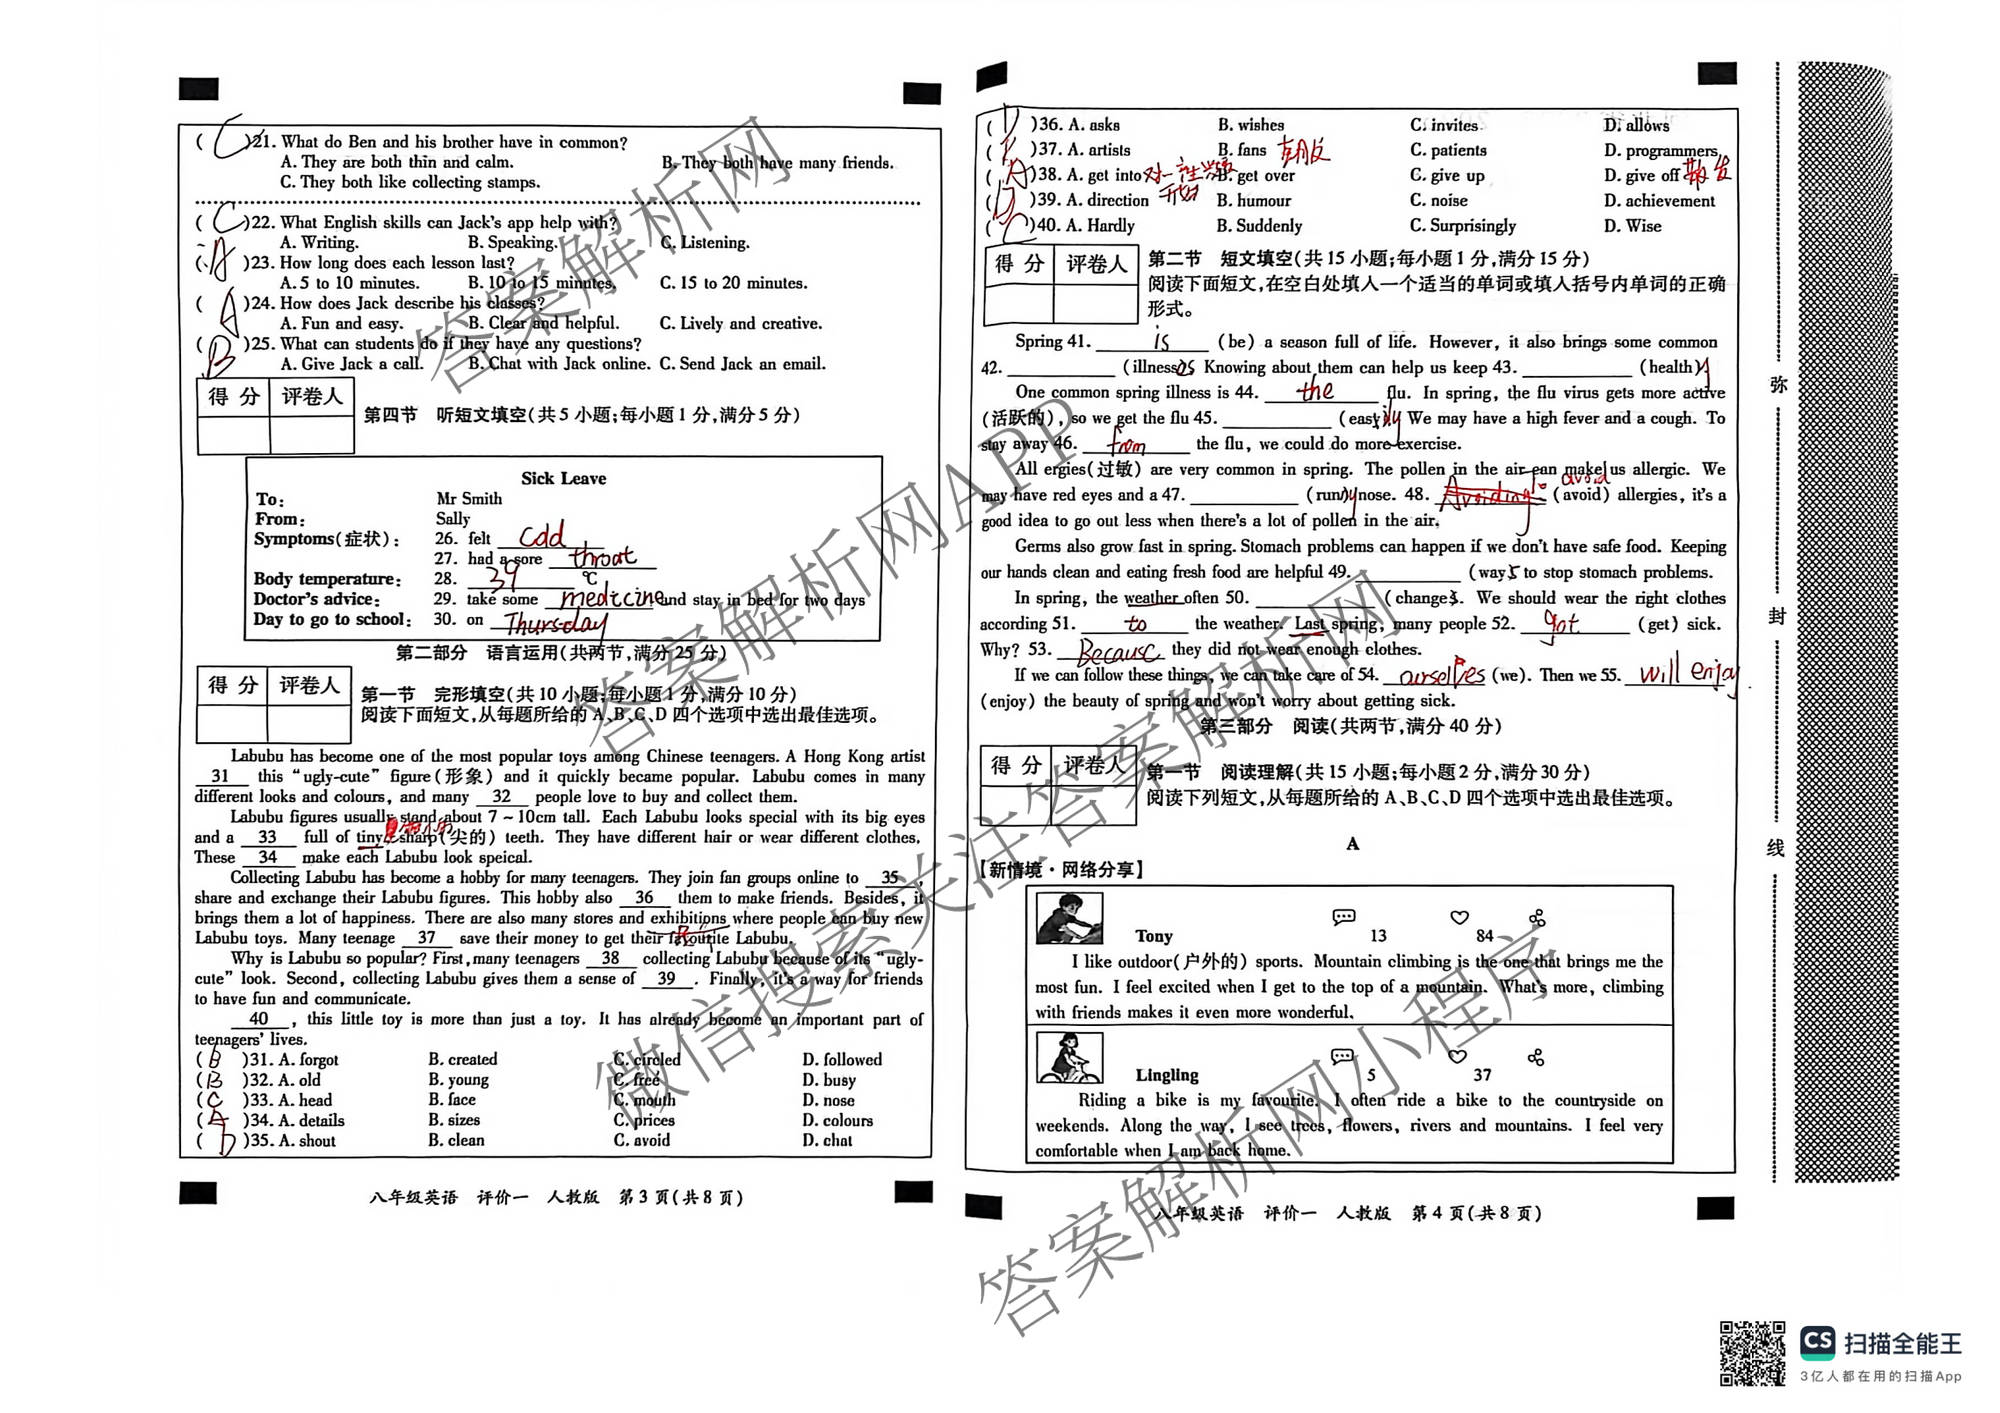 ( C )21. What do Ben and his brother have in common?
A. They are both thin and calm. B. They both have many friends.
C. They both like collecting stamps.
( C )22. What English skills can Jack's app help with?
A. Writing. B. Speaking. C. Listening.
( A )23. How long does each lesson last?
A. 5 to 10 minutes. B. 10 to 15 minutes. C. 15 to 20 minutes.
( A )24. How does Jack describe his classes?
A. Fun and easy. B. Clear and helpful. C. Lively and creative.
( B )25. What can students do if they have any questions?
A. Give Jack a call. B. Chat with Jack online. C. Send Jack an email.
得 分 评卷人
第四节 听短文填空(共 5 小题;每小题 1 分,满分 5 分)
Sick Leave
To: Mr Smith
From: Sally
Symptoms(症状): 26. felt cold
27. had a sore throat
Body temperature: 28. 39 ℃
Doctor's advice: 29. take some medicine and stay in bed for two days
Day to go to school: 30. on Thursday
第二部分 语言运用(共两节,满分 25 分)
得 分 评卷人
第一节 完形填空(共 10 小题;每小题 1 分,满分 10 分)
阅读下面短文,从每题所给的 A、B、C、D 四个选项中选出最佳选项。
Labubu has become one of the most popular toys among Chinese teenagers. A Hong Kong artist
31 this “ugly-cute” figure(形象) and it quickly became popular. Labubu comes in many
different looks and colours, and many 32 people love to buy and collect them.
Labubu figures usually stand about 7~10cm tall. Each Labubu looks special with its big eyes
and a 33 full of tiny, sharp(尖的) teeth. They have different hair or wear different clothes.
These 34 make each Labubu look speical.
Collecting Labubu has become a hobby for many teenagers. They join fan groups online to 35,
share and exchange their Labubu figures. This hobby also 36 them to make friends. Besides, it
brings them a lot of happiness. There are also many stores and exhibitions where people can buy new
Labubu toys. Many teenage 37 save their money to get their favourite Labubu.
Why is Labubu so popular? First, many teenagers 38 collecting Labubu because of its “ugly-
cute” look. Second, collecting Labubu gives them a sense of 39. Finally, it's a way for friends
to have fun and communicate.
40, this little toy is more than just a toy. It has already become an important part of
teenagers' lives.
( B )31. A. forgot B. created C. circled D. followed
( B )32. A. old B. young C. free D. busy
( C )33. A. head B. face C. mouth D. nose
( A )34. A. details B. sizes C. prices D. colours
( D )35. A. shout B. clean C. avoid D. chat
八年级英语 评价一 人教版 第 3 页(共 8 页)
( D )36. A. asks B. wishes C. invites D. allows
( B )37. A. artists B. fans C. patients D. programmers
( A )38. A. get into B. get over C. give up D. give off
( D )39. A. direction B. humour C. noise D. achievement
( C )40. A. Hardly B. Suddenly C. Surprisingly D. Wise
得 分 评卷人
第二节 短文填空(共 15 小题;每小题 1 分,满分 15 分)
阅读下面短文,在空白处填入一个适当的单词或填入括号内单词的正确
形式。
Spring 41. is (be) a season full of life. However, it also brings some common
42. (illness es Knowing about them can help us keep 43. (health)y
One common spring illness is 44. the flu. In spring, the flu virus gets more active
(活跃的), so we get the flu 45. (easy ily We may have a high fever and a cough. To
stay away 46. from the flu, we could do more exercise.
All ergies(过敏) are very common in spring. The pollen in the air can make us allergic. We
may have red eyes and a 47. (run)ny nose. 48. Avoiding To avoid (avoid) allergies, it's a
good idea to go out less when there's a lot of pollen in the air.
Germs also grow fast in spring. Stomach problems can happen if we don't have safe food. Keeping
our hands clean and eating fresh food are helpful 49. (way s to stop stomach problems.
In spring, the weather often 50. (change s. We should wear the right clothes
according 51. to the weather. Last spring, many people 52. got (get) sick.
Why? 53. Because they did not wear enough clothes.
If we can follow these things, we can take care of 54. ourselves (we). Then we 55. will enjoy
(enjoy) the beauty of spring and won't worry about getting sick.
第三部分 阅读(共两节,满分 40 分)
得 分 评卷人
第一节 阅读理解(共 15 小题;每小题 2 分,满分 30 分)
阅读下列短文,从每题所给的 A、B、C、D 四个选项中选出最佳选项。
A
【新情境·网络分享】
Tony 13 84
I like outdoor(户外的) sports. Mountain climbing is the one that brings me the
most fun. I feel excited when I get to the top of a mountain. What's more, climbing
with friends makes it even more wonderful.
Lingling 5 37
Riding a bike is my favourite. I often ride a bike to the countryside on
weekends. Along the way, I see trees, flowers, rivers and mountains. I feel very
comfortable when I am back home.
八年级英语 评价一 人教版 第 4 页(共 8 页)
弥
封
线
答案解析网
答案解析网APP
微信搜索关注答案解析网
答案解析网小程序
CS 扫描全能王
3亿人都在用的扫描App